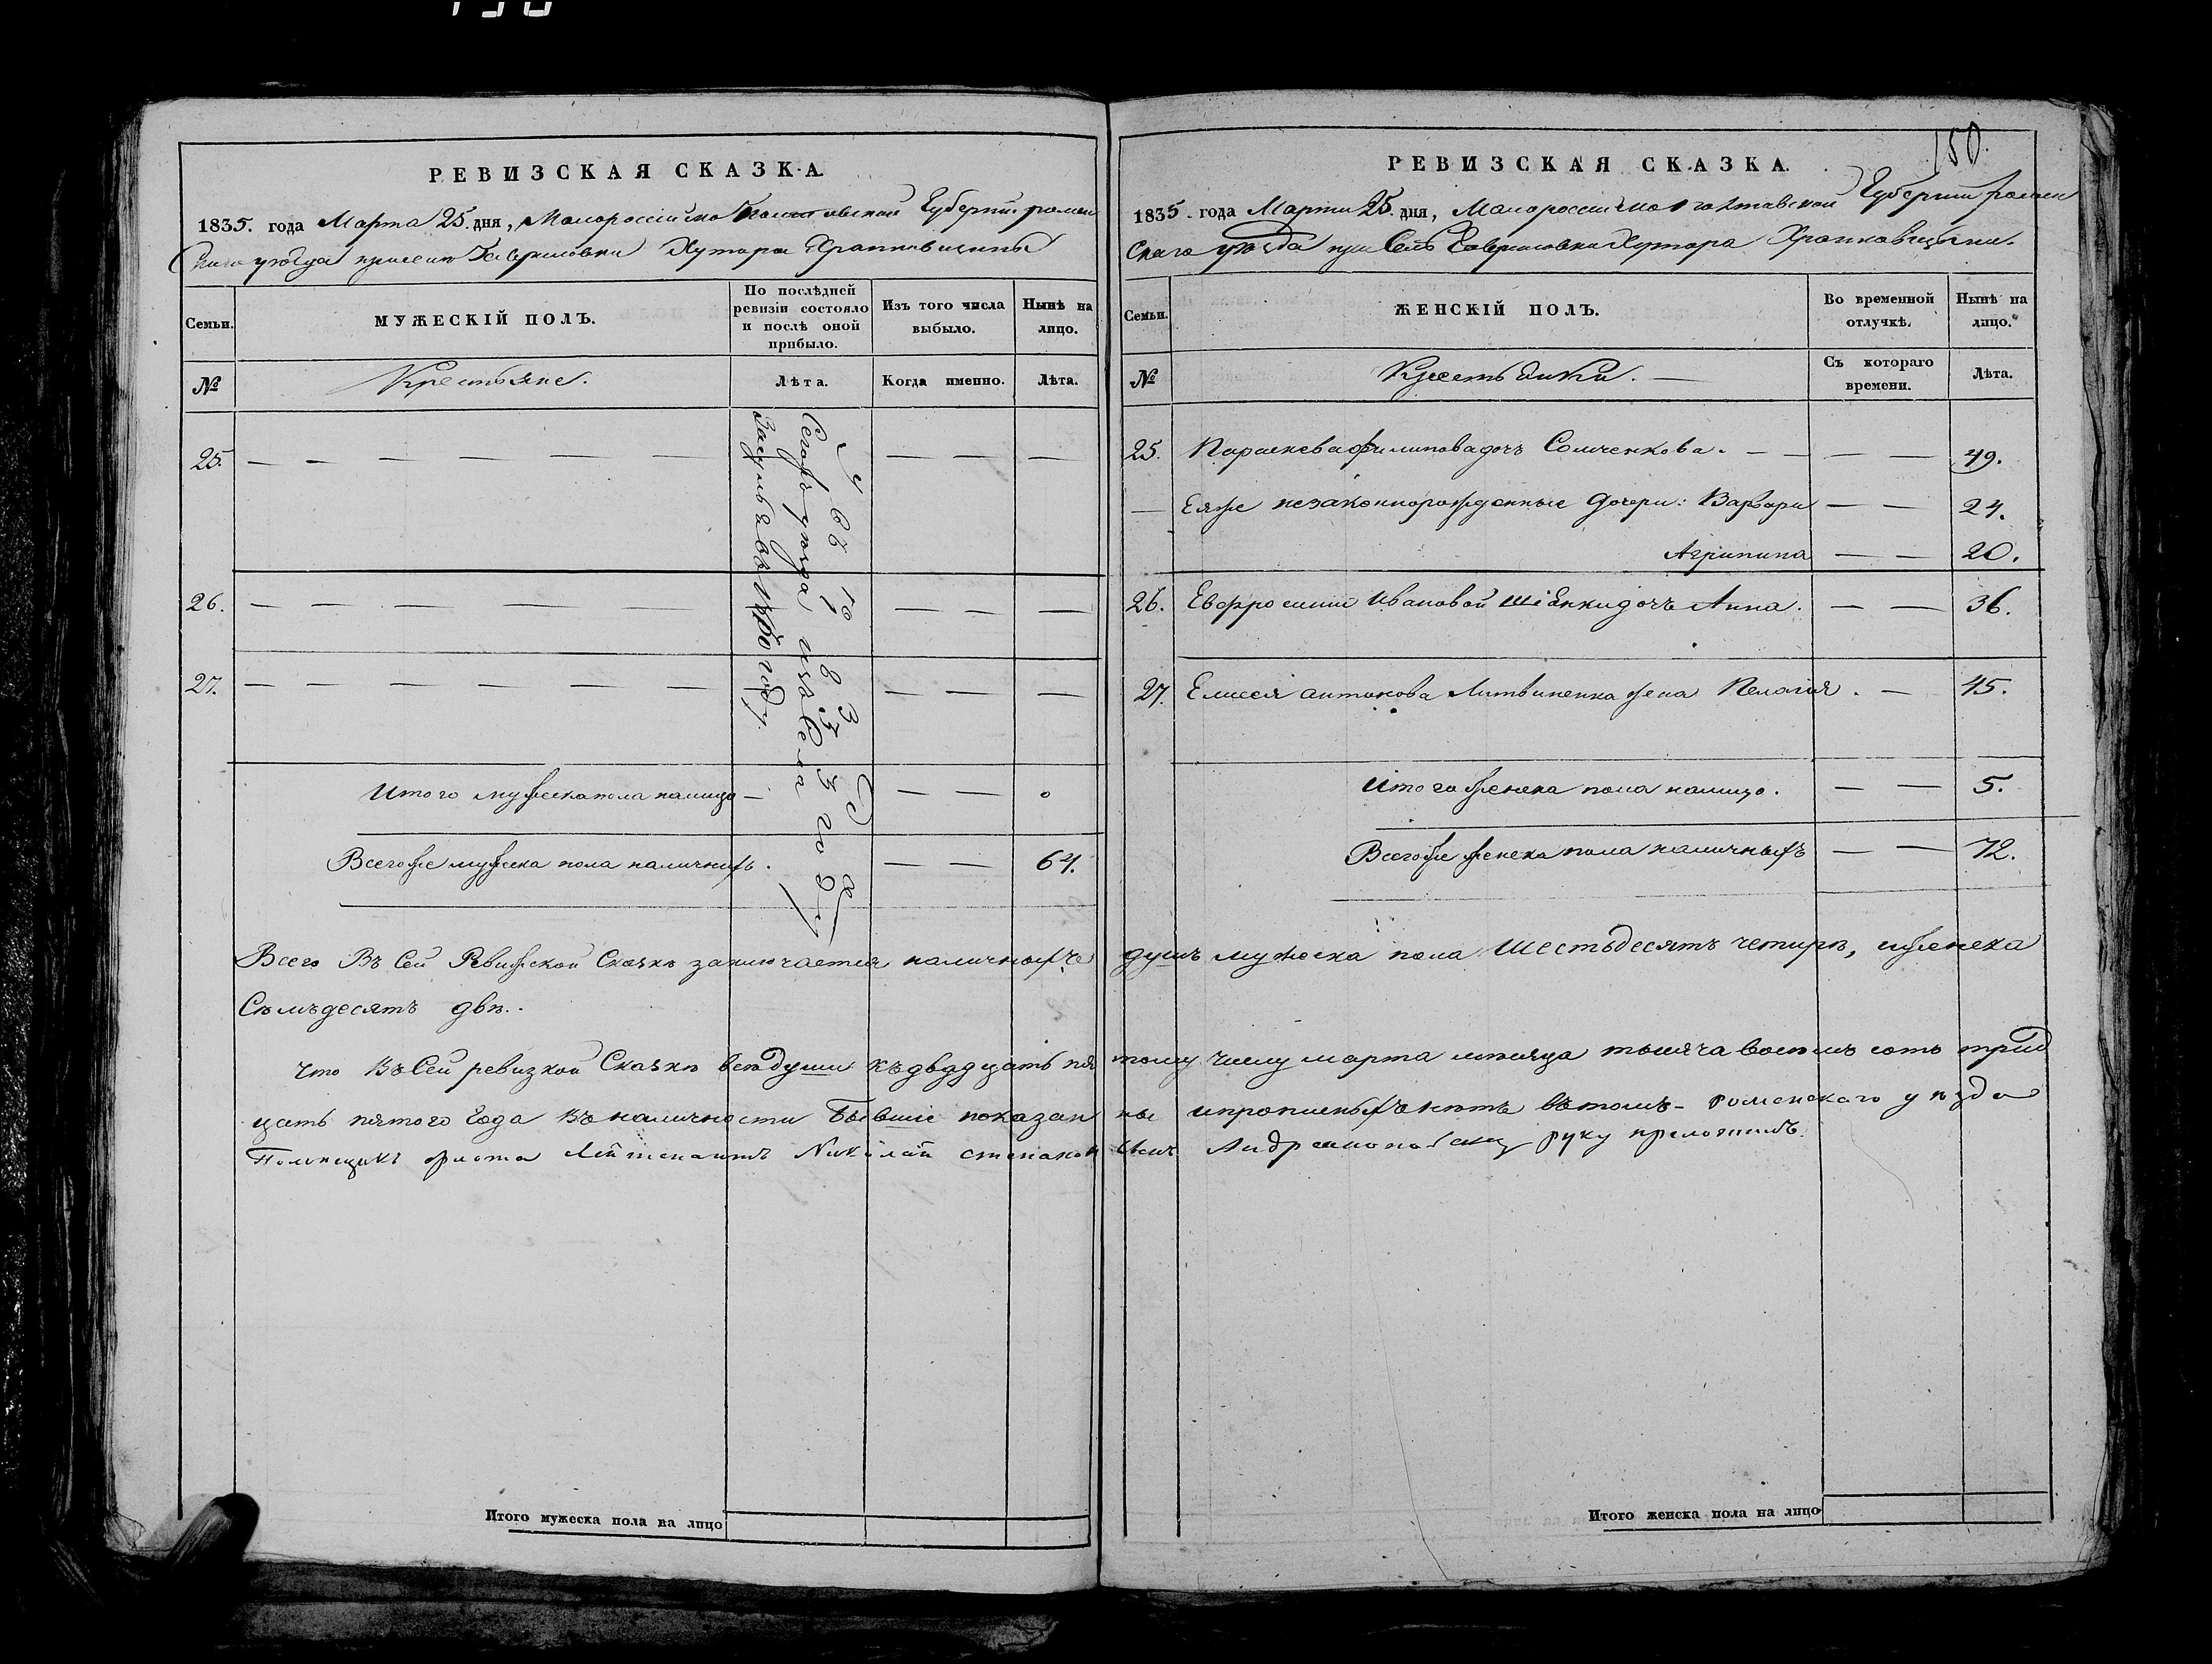 РЕВИЗСКАЯ СКАЗКА.
1835. года Марта 25. дня, Малороссийско Полтавской Губернии ромен
скаго уезда при селе Гавриловки Хутора Храпковщины
Семьи.
МУЖЕСКІЙ ПОЛЪ.
По послѣдней ревизіи состояло и послѣ оной прибыло.
Изъ того числа выбыло.
Нынѣ на лицо.
№
Крестьяне.
Лѣта.
Когда именно.
Лѣта.
25. — — — — — — — — —
26. — — — — — — —
27. — — — — — — — — —
Сегожъ уезда изъ Села
году
Итого мужеска пола налицо — — — 0
Всего же мужеска пола наличныхъ. — — 64.
Итого мужеска пола на лицо
150.
РЕВИЗСКАЯ СКАЗКА.
1835. года Марта 25. дня, Малороссийско Полтавской Губернии ромен
скаго уезда при Селе Гавриловки Хутора Храпковщины.
Семьи.
ЖЕНСКІЙ ПОЛЪ.
Во временной отлучкѣ.
Нынѣ на лицо.
№
Крестьянки. —
Съ котораго времени.
Лѣта.
25. Параскева филипова дочь Сомченкова. — — — — 49.
— Еяже незаконнорожденные дочери: Варвара — — 24.
Агрипина — — 20.
26. Евфросинии Ивановой дочь Анна. — — 36.
27. Елисея антонова Литвиненка жена Пелагия. — 45.
Итого женска пола налицо. — — 5.
Всегоже женска пола наличныхъ — — 72.
Всего Въ Сей Ревижской Сказке заключается наличныхъ душъ мужеска пола Шестьдесятъ четыре, иженска
Семьдесятъ две..
Что Въ Сей ревизкой Сказке все души къ двадцать пятому числу марта месяца тысяча восемь сотъ трид
цать пятого Года Въ наличности Бывшие показанны ипрописныхъ нетъ въ томъ - роменскаго уезда
Помещикъ флота Лейтенантъ Николай степановъ сынъ руку приложилъ.
Итого женска пола на лицо